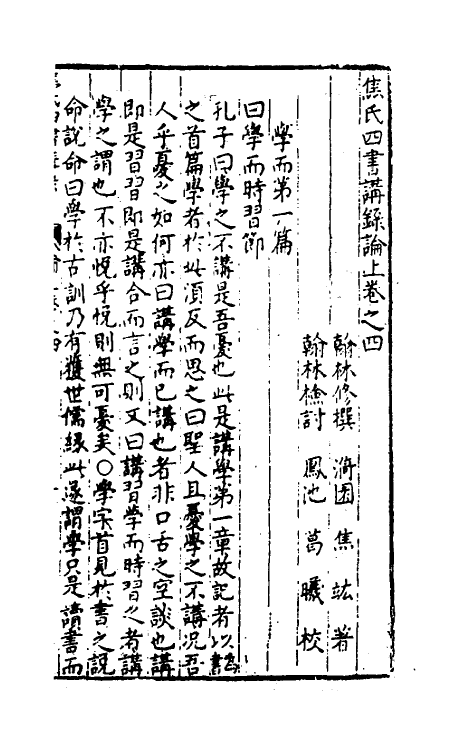 焦氏四書講錄論上卷之四
翰林修撰 漪園 焦 竑 著
翰林檢討 鳳池 葛 曦 校
學而第一篇
曰學而時習節
孔子曰學之不講是吾憂也此是講學第一章故記者以為
之首篇學者於此須反而思之曰聖人且憂學之不講况吾
人乎憂之如何亦曰講學而已講也者非口舌之空談也講
即是習習即是講合而言之則又曰講習學而時習之者講
學之謂也不亦悅乎悅則無可憂矣○學字首見於書之說
命說命曰學於古訓乃有獲世儒緣此遂謂學只是讀書而